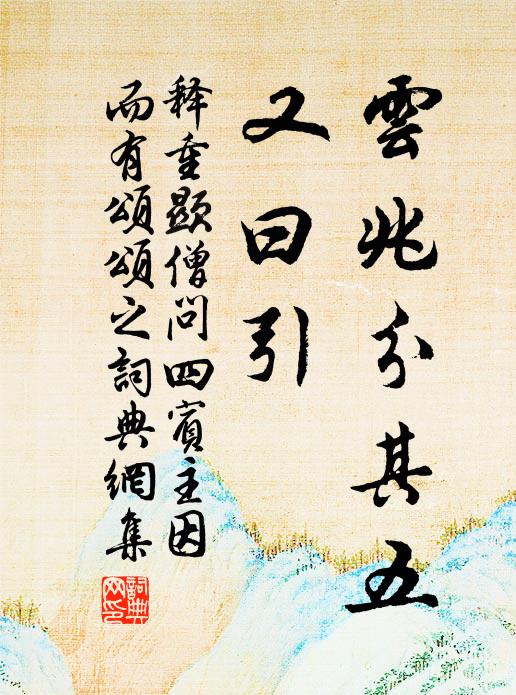 雲兆分其五
又曰引
释重顯僧问四賓主因
而有頌頌之詞典網集
詞典網印